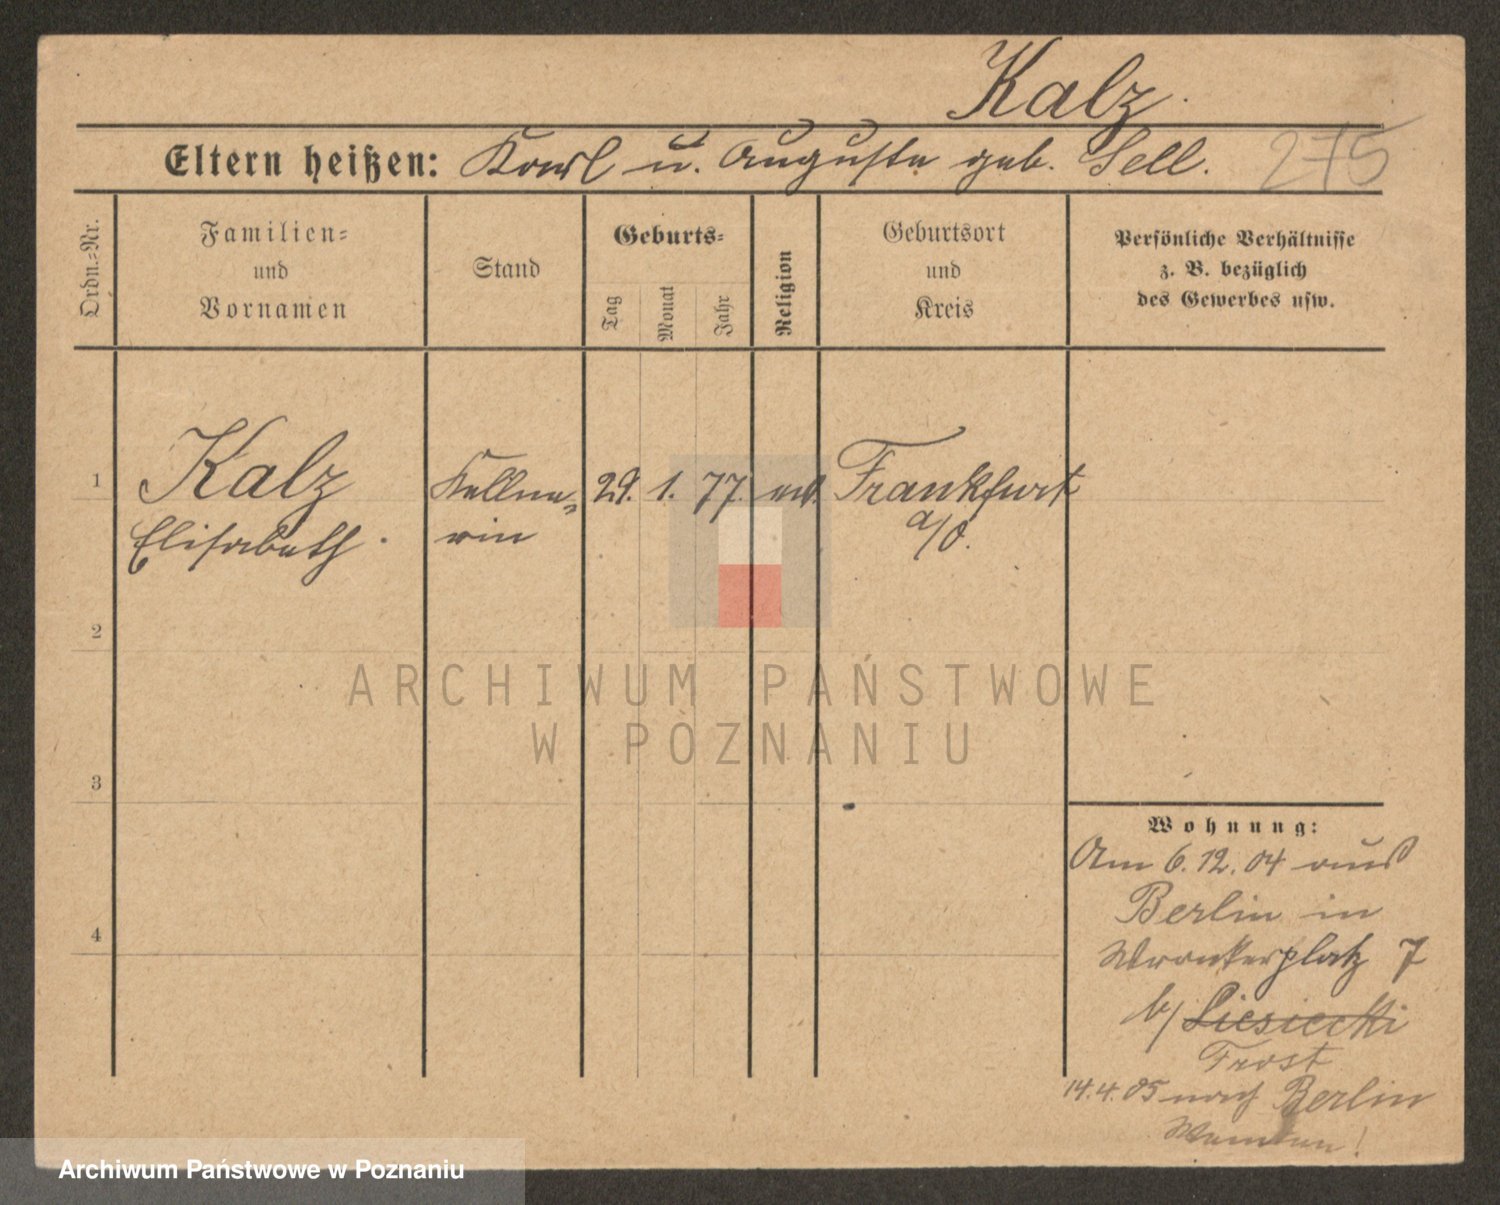 Kalz.
Eltern heißen: Karl u. Auguste geb. Sell. 275
Ordn.=Nr.
Familien=
und
Vornamen
Stand
Geburts=
Tag
Monat
Jahr
Religion
Geburtsort
und
Kreis
Persönliche Verhältnisse
z. B. bezüglich
des Gewerbes usw.
1 Kalz Kellne= 29. 1. 77. ev. Frankfurt
Elisabeth. rin a/O.
2
3
4
ARCHIWUM PAŃSTWOWE
W POZNANIU
Wohnung:
Am 6.12.04 aus
Berlin in
Wronkerplatz 7
b/ Liesiecki
Frost
14.4.05 nach Berlin
Archiwum Państwowe w Poznaniu